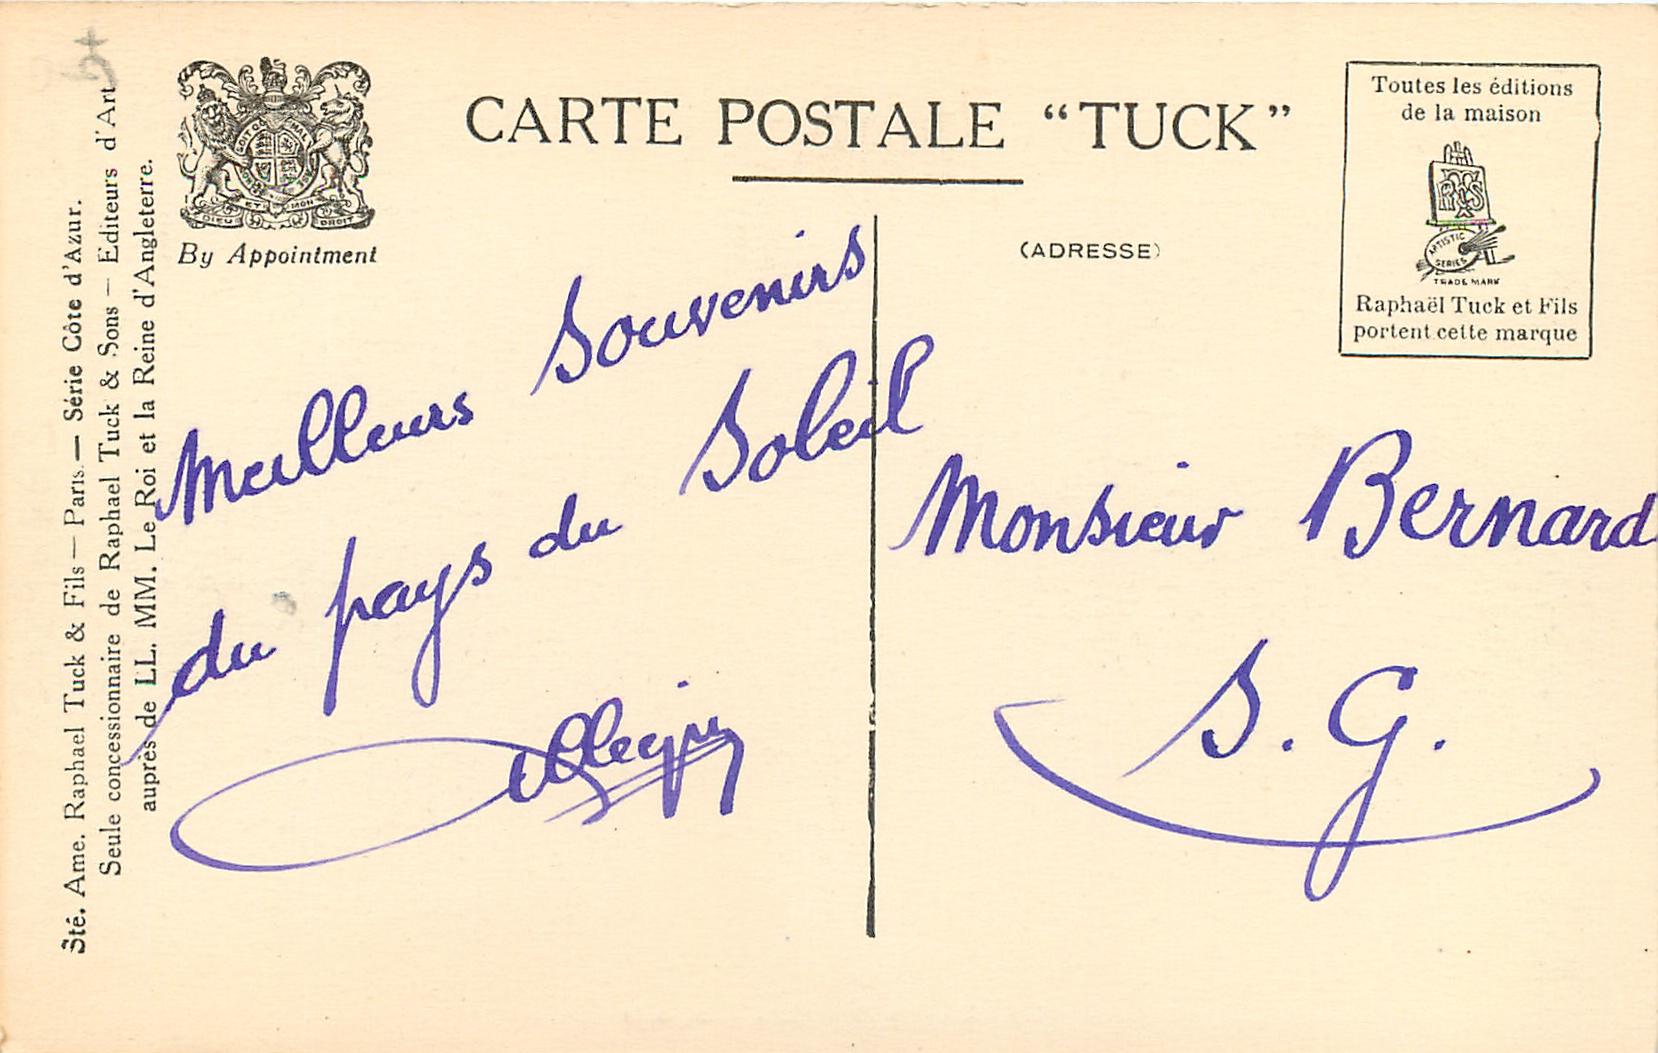 CARTE POSTALE “TUCK”
By Appointment
DIEU ET MON DROIT
(ADRESSE)
Toutes les éditions
de la maison
ARTISTIC
SERIES
TRADE MARK
Raphaël Tuck et Fils
portent cette marque
Sté. Ame. Raphael Tuck & Fils — Paris — Série Côte d'Azur.
Seule concessionnaire de Raphael Tuck & Sons — Editeurs d'Art
auprès de LL. MM. Le Roi et la Reine d'Angleterre.
Meilleurs Souvenirs
du pays du Soleil
Monsieur Bernard
S. G.